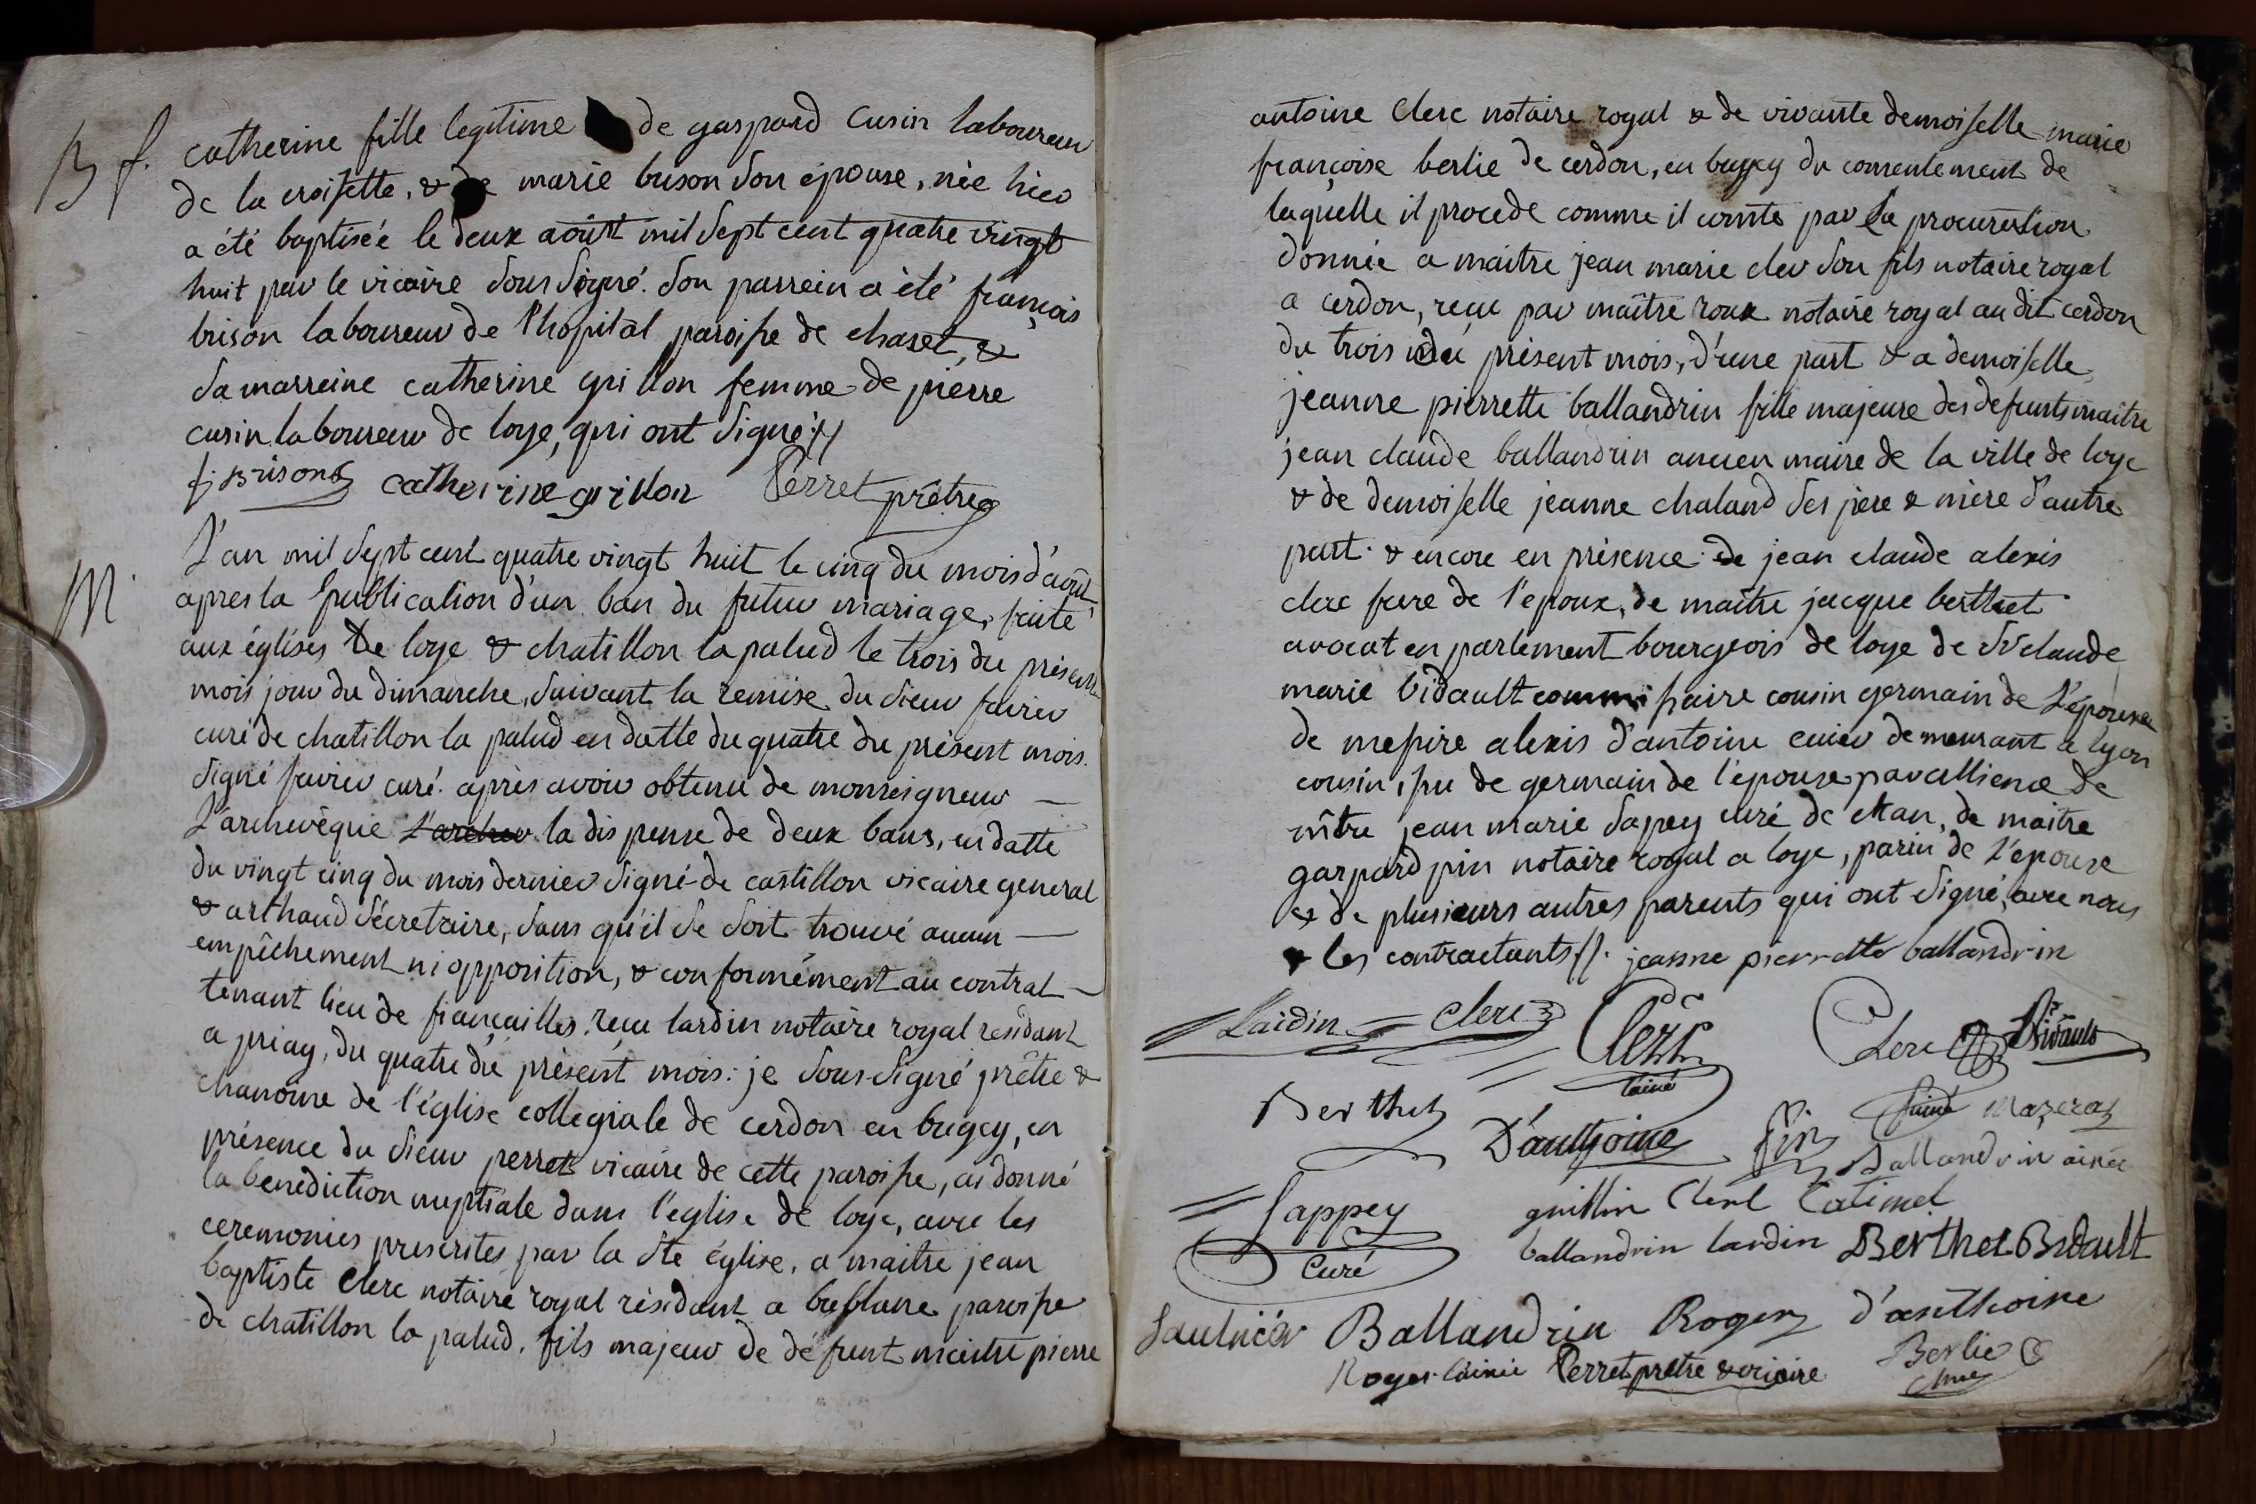 B f. catherine fille legitime de gaspard Cusin laboureur
de la croisette, & de marie brison son épouse, née hier
a été baptisée le deux août mil sept cent quatre vingt
huit par le vicaire soussigné. son parrein a été françois
brison laboureur de l'hopital paroisse de chaset, &
sa marreine catherine grillon femme de pierre
cusin laboureur de loye, qui ont signé.//
f. Brison catherine grillon Perret prêtre
M. L'an mil sept cent quatre vingt huit le cinq du mois d'août,
apres la publication d'un ban du futur mariage, faite
aux églises de loye & chatillon la palud le trois du présent
mois jour du dimanche, suivant la remise du sieur favier
curé de chatillon la palud en datte du quatre du présent mois.
signé favier curé. après avoir obtenu de monseigneur
L'archevêque L'archev la dispense de deux bans, en datte
du vingt cinq du mois dernier signé de castillon vicaire general
& arthaud sécretaire, sans qu'il se soit trouvé aucun
empêchement ni opposition, & conformément au contrat
tenant lieu de fiançailles, reçu lardin notaire royal résidant
a priay, du quatre du présent mois: je sous-signé prêtre &
chanoine de l'église collegiale de cerdon en bugey, en
présence du sieur perret vicaire de cette paroisse, ai donné
la benediction nuptiale dans l'église de loye, avec les
ceremonies prescrites par la ste église, a maitre jean
baptiste clerc notaire royal résidant a bublane paroisse
de chatillon la palud, fils majeur de défunt maitre pierre
antoine clerc notaire royal & de vivante demoiselle marie
françoise berlie de cerdon, en bugey du consentement de
laquelle il procede comme il conste par sa procuration
donnée a maitre jean marie clerc son fils notaire royal
a cerdon, reçue par maître roux notaire royal au dit cerdon
du trois du présent mois, d'une part & a demoiselle
jeanne pierrette ballandrin fille majeure des defunts maître
jean claude ballandrin ancien maire de la ville de loye
& de demoiselle jeanne chaland ses père & mère d'autre
part. & encore en présence de jean claude alexis
clerc frere de l'epoux, de maitre jacque berthet
avocat en parlement bourgeois de loye de Sr claude
marie bidault commissaire cousin germain de l'épouse
de messire alexis d'antoine demeurant a lyon
cousin issu de germain de l'épouse par allience de
mître jean marie sapey curé de de maitre
gaspard pin notaire royal a loye, parin de l'epouse
& de plusieurs autres parents qui ont signé, avec nous
& les contractants//. jeanne pierrette ballandrin
Lardin Clerc Clerc l'ainé Clerc Bidault
Berthet D'anthoine pin l'ainé Mazerat
Ballandrin ainée
Sappey curé guillin Clerc Catimel
ballandrin lardin Berthet Bidault
Saulnier Ballandrin Roger d'anthoine
Roger l'ainée Perret prêtre & vicaire Berlie